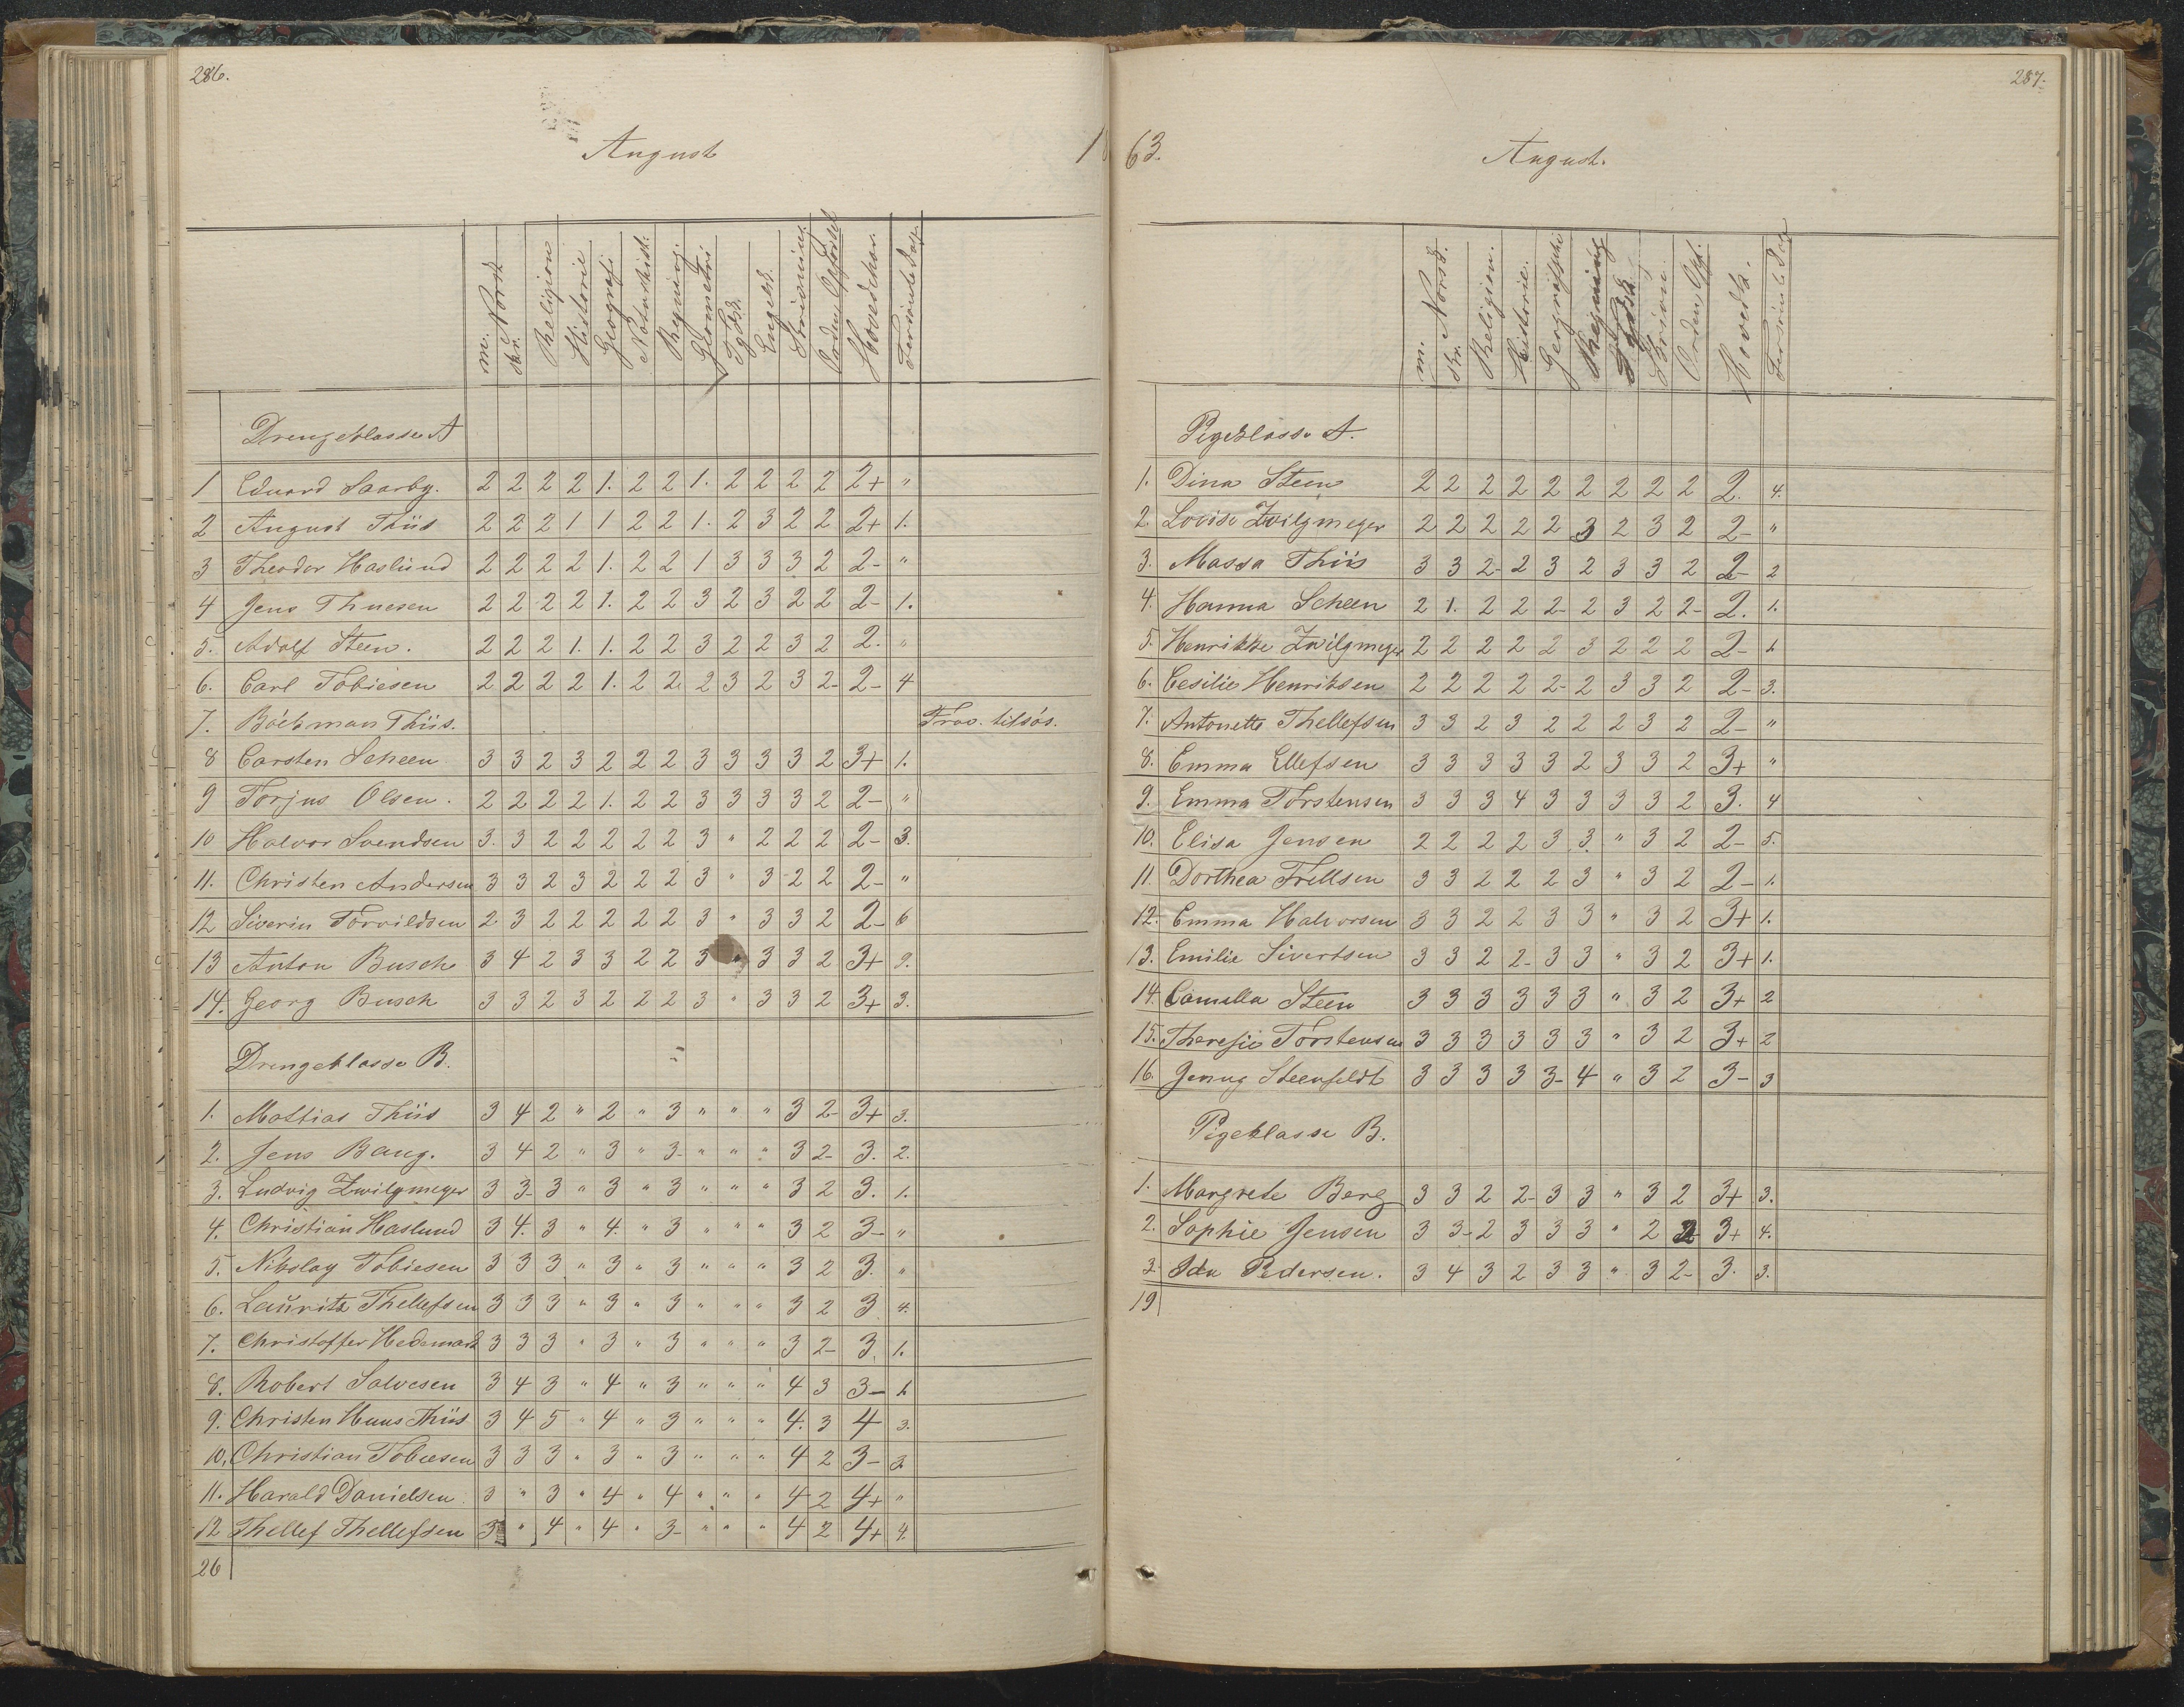 286.
August 1863.
m. Norsk skr. Religion Historie Geografi Naturhist. Regning Geometri Tydsk Engelsk Skrivning Orden, Opførsel Hovedchar. Forsømte Dage
Drengeklasse A
1 Eduard Saarby. 2 2 2 2 1. 2 2 1. 2 2 2 2 2+ "
2 August Thiis 2 2 2 1 1 2 2 1. 2 3 2 2 2+ 1.
3 Theodor Haslund 2 2 2 2 1. 2 2 1 3 3 3 2 2- "
4 Jens Thuesen 2 2 2 2 1. 2 2 3 2 3 2 2 2- 1.
5. Adolf Steen. 2 2 2 1. 1. 2 2 3 2 2 3 2 2. "
6. Carl Tobiesen 2 2 2 2 1. 2 2 2 3 2 3 2- 2- 4
7. Böckman Thiis. Frav. tilsøs.
8 Carsten Scheen 3 3 2 3 2 2 2 3 3 3 3 2 3+ 1.
9 Torjus Olsen. 2 2 2 2 1. 2 2 3 3 3 3 2 2- "
10 Halvor Svendsen 3. 3 2 2 2 2 2 3 " 2 2 2 2- 3.
11. Christen Andersen 3 3 2 3 2 2 2 3 " 3 2 2 2- "
12 Siverin Torvildsen 2. 3 2 2 2 2 2 3 " 3 3 2 2- 6
13 Anton Busch 3 4 2 3 3 2 2 3 " 3 3 2 3+ 9.
14. Georg Busch 3 3 2 3 2 2 2 3 " 3 3 2 3+ 3.
Drengeklasse B.
1. Mattias Thiis 3 4 2 " 2 " 3 " " " 3 2- 3+ 3.
2. Jens Bang. 3 4 2 " 3 " 3- " " " 3 2- 3. 2.
3. Ludvig Zwilgmeyer 3 3- 3 " 3 " 3 " " " 3 2 3. 1.
4. Christian Haslund 3 4. 3 " 4. " 3 " " " 3 2 3- "
5. Nikolay Tobiesen 3 3 3 " 3 " 3 " " " 3 2 3. "
6. Lauritz Thellefsen 3 3 3 " 3 " 3 " " " 3 2 3 4.
7. Christoffer Hedemark 3 3 3 " 3 " 3 " " " 3 2- 3. 1.
8. Robert Salvesen 3 4 3 " 4 " 3 " " " 4 3 3- 1.
9. Christen Huus Thiis 3 4 5 " 4 " 3 " " " 4. 3 4 3.
10. Christian Tobiesen 3 3 3 " 3 " 3 " " " 4 2 3- 3.
11. Harald Danielsen 3 " 3 " 4 " 4 " " " 4 2 4+ "
12 Thellef Thellefsen 3 " 4 " 4 " 3- " " " 4 2 4+ 4.
26
287.
August.
m. Norsk. skr. Religion. Historie. Geografiske Regning Tydsk. Skrivn. Orden, Opf. Hovedk. Forsømte Dage
Pigeklasse A.
1. Dina Steen 2 2 2 2 2 2 2 2 2 2. 4.
2. Lovise Zwilgmeyer 2 2 2 2 2 3 2 3 2 2- "
3. Massa Thiis 3 3 2- 2 3 2 3 3 2 2- 2
4. Hanna Scheen 2 1. 2 2 2- 2 3 2 2- 2. 1.
5. Henrikke Zwilgmeyer 2 2 2 2 2 3 2 2 2 2- 1.
6. Cesilie Henriksen 2 2 2 2 2- 2 3 3 2 2- 3.
7. Antonette Thellefsen 3 3 2 3 2 2 2 3 2 2- "
8. Emma Ellefsen 3 3 3 3 3 2 3 3 2 3+ "
9. Emma Torstensen 3 3 3 4 3 3 3 3 2 3. 4
10. Elisa Jensen 2 2 2 2 3 3. " 3 2 2- 5.
11. Dorthea Trellsen 3 3 2 2 2 3 " 3 2 2- 1.
12. Emma Halvorsen 3 3 2 2 3 3 " 3 2 3+ 1.
13. Emilie Sivertsen 3 3 2 2- 3 3 " 3 2 3+ 1.
14. Camilla Steen 3 3 3 3 3 3 " 3 2 3+ 2
15. Theresie Torstensen 3 3 3 3 3 3 " 3 2 3+ 2
16. Jenny Steenfeldt 3 3 3 3 3- 4 " 3 2 3- 3
Pigeklasse B.
1. Margrete Berg 3 3 2 2- 3 3 " 3 2 3+ 3.
2. Sophie Jensen 3 3- 2 3 3 3 " 2 2 3+ 4.
3. Ida Pedersen. 3 4 3 2 3 3 " 3 2- 3. 3.
19